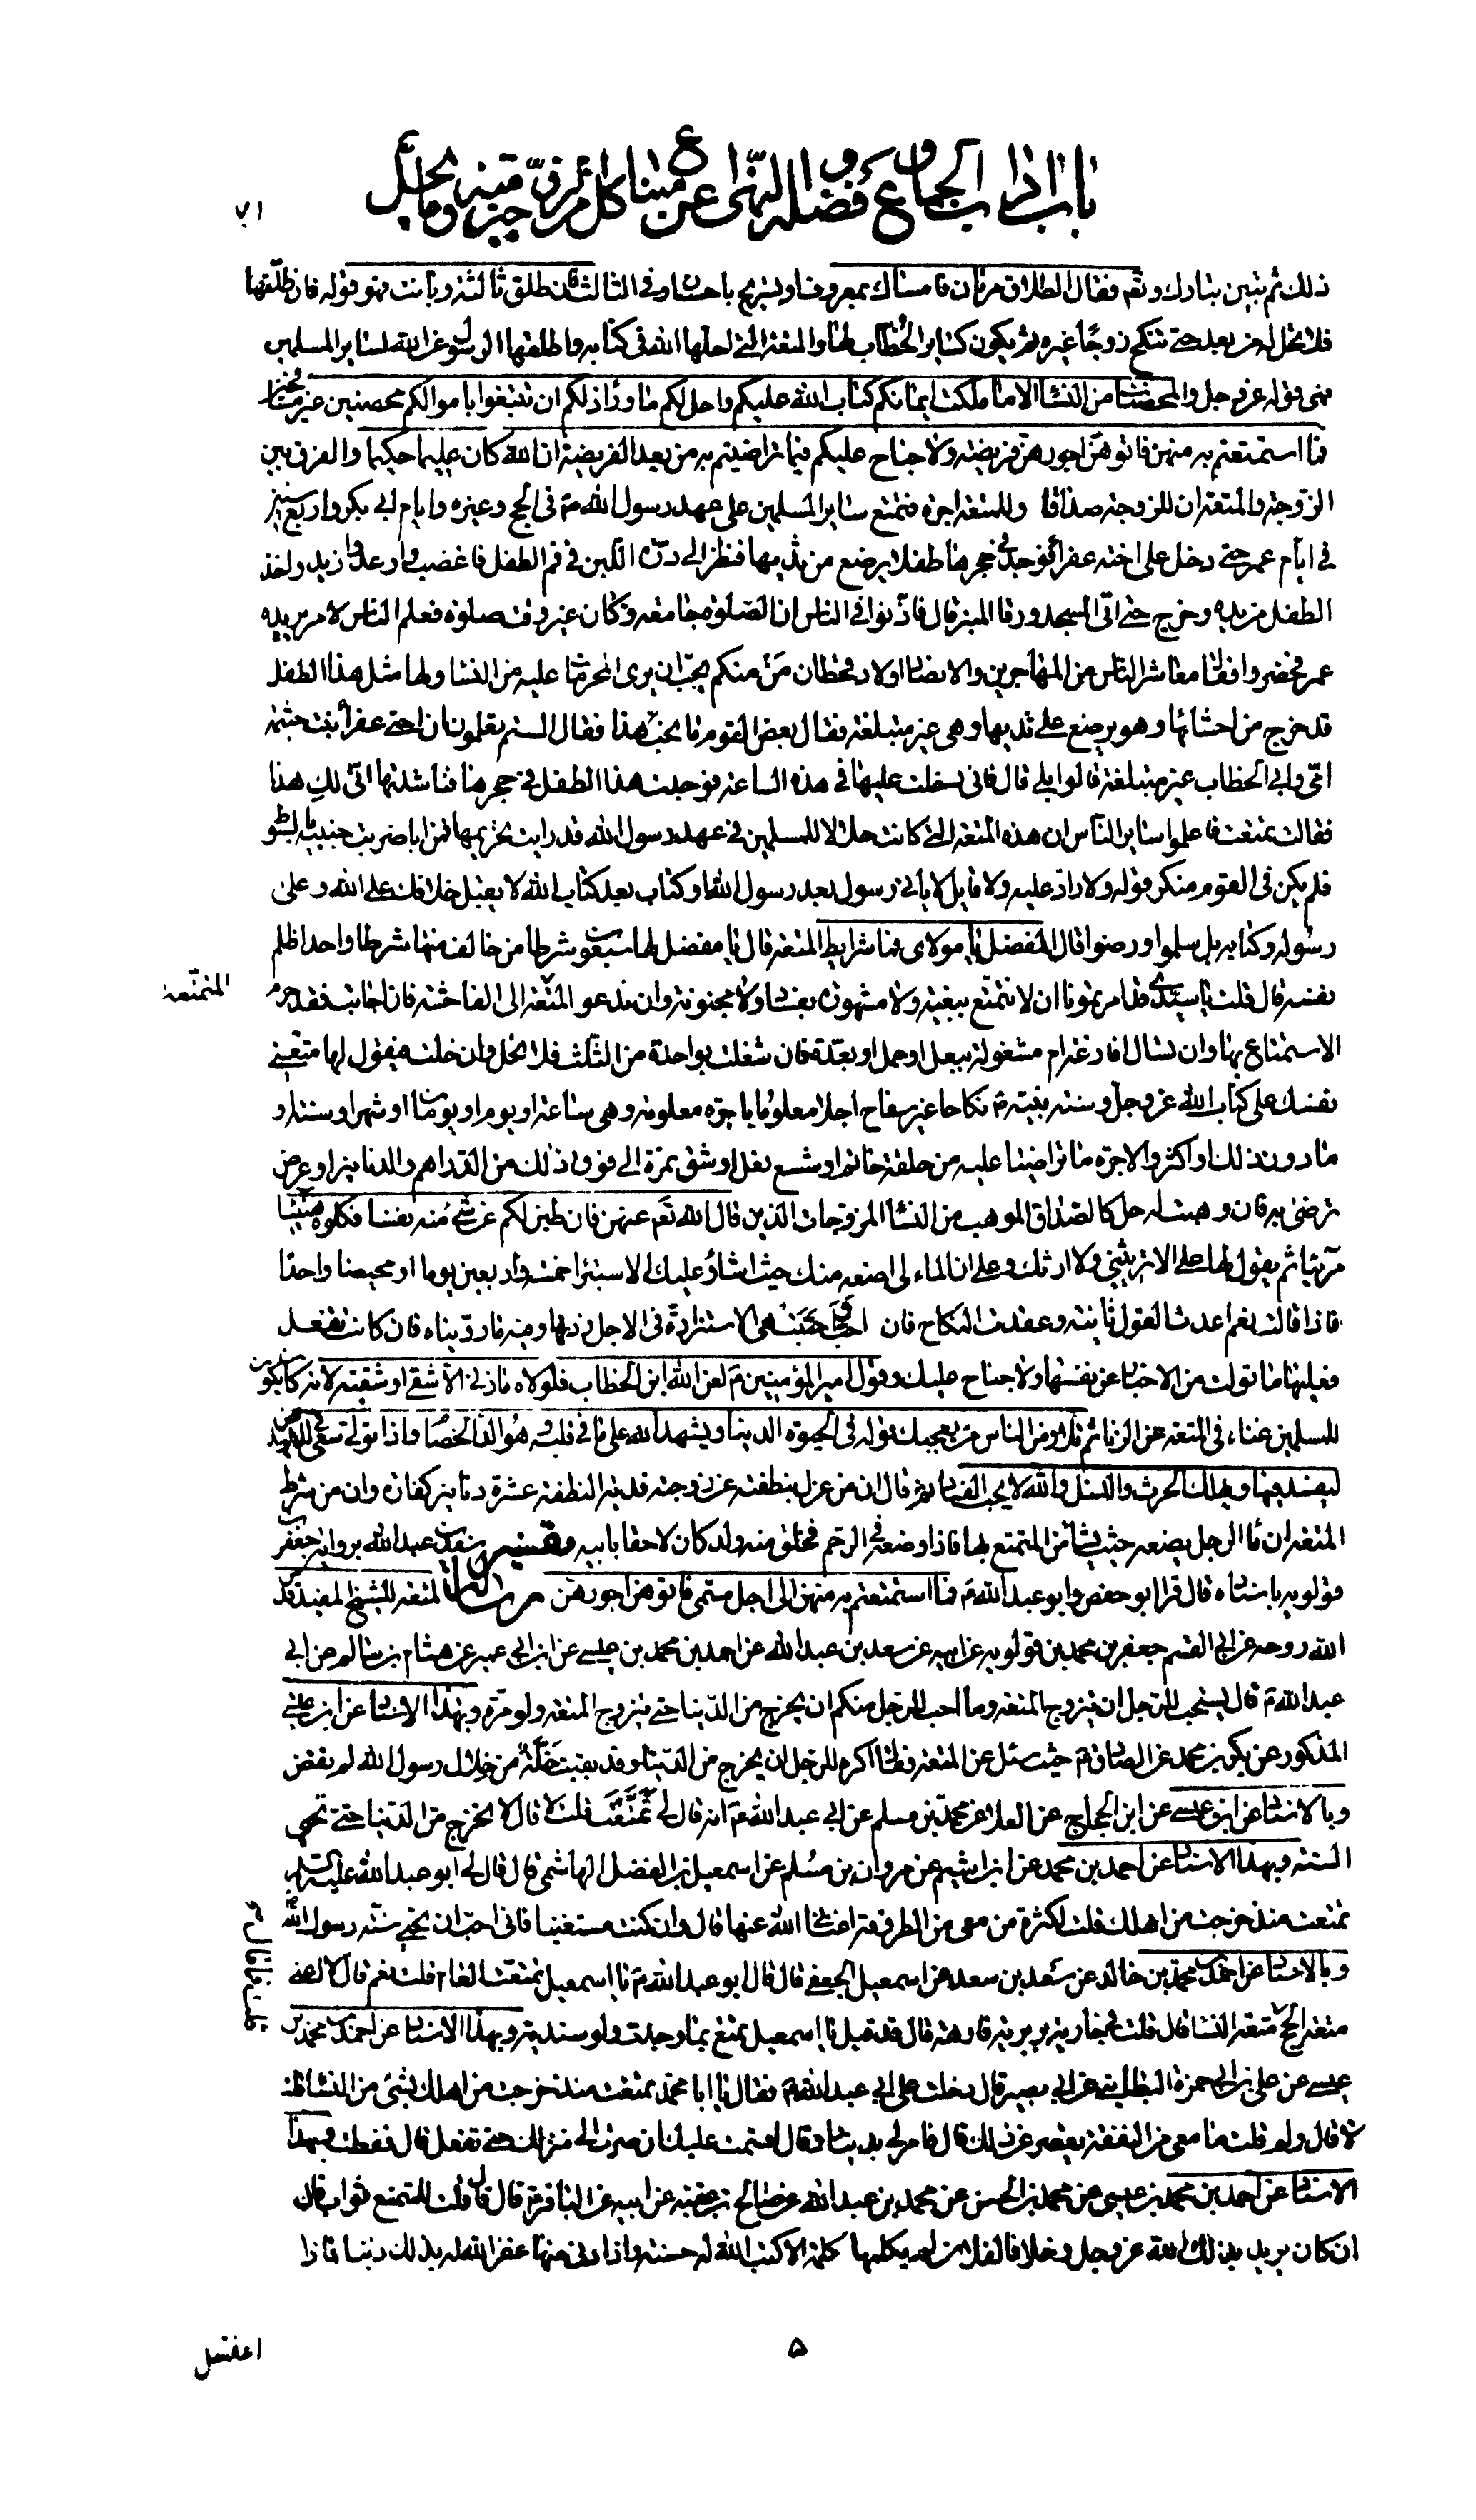 باب اداب الجماع و فضله و النهى عن امتناع كل من الزوجين وما يحل
٧١
ذلك ثم يبين تبارك وتعم فقال الطلاق مرتان فامساك بمعروف او تسريح باحسان وفى الثالثة فان طلق ثالثة وبانت فهو قوله فان طلقها
فلا تحل له من بعد حتى تنكح زوجًا غيره ثم يكون كساير الخطاب لها والمتعة التى احلها الله فى كتابه واطلقها الرسول عن الله لساير المسلمين
فهى قوله عز وجل والمحصنات من النسا الا ما ملكت ايمانكم كتاب الله عليكم واحل لكم ما وراء ذلكم ان تبتغوا باموالكم محصنين غير مسافحين
فما استمتعتم به منهن فاتوهن اجورهن فريضة ولا جناح عليكم فيما تراضيتم به من بعد الفريضة ان الله كان عليما حكيما والفرق بين
الزوجة والمتعة ان للزوجة صداقا وللمتعة اجرة فتمتع ساير المسلمين على عهد رسول الله ص فى الحج وغيره وايام ابى بكر واربع سنين
فى ايام عمر حتى دخل على اخته عفراء فوجد فى حجرها طفلا يرضع من ثديها فنظر الى درة اللبن فى فم الطفل فاغضب وارعد وازبد واخذ
الطفل من يديه وخرج حتى اتى المسجد ورقا المنبر قال فاذنوا فى الناس ان الصلوة جامعة وكان غير وقت صلوة فعلم الناس لامر يريده
عمر فحضر وا فقال معاشر الناس من المهاجرين والانصار اولاد قحطان مَن منكم يحب ان يرى المحرمات عليه من النسا ولها مثل هذا الطفل
قد خرج من احشائها وهو يرضع على ثديها وهى غير متبلغة فقال بعض القوم ما نحب هذا فقال الستم تعلمون ان اختى عفراء بنت حنتمه
امى وابى الخطاب غير متبلغة قالوا بلى قال فانى دخلت عليها فى هذه الساعة فوجدت هذا الطفل فى حجرها فناشدتها انى لكِ هذا
فقالت تمتعت فاعلموا ساير الناس ان هذه المتعة التى كانت حلالا للمسلمين فى عهد رسول الله قد رايت تحريمها فمن ابا ضربت جنبيه بالسوط
فلم يكن فى القوم منكر قوله ولا راد عليه ولا قايل لا ياتى رسول بعد رسول الله او كتاب بعد كتاب الله لا يقبل خلافك على الله وعلى
رسوله وكتابه بل سلموا ورضوا قال المفضل يا مولاى فما شرايط المتعة قال يا مفضل لها سبعون شرطا من خالف منها شرطا واحدا ظلم
نفسه قال قلت يا سيدى قد امرتمونا ان لا نتمتع ببغية ولا مشهورة بفساد ولا مجنونة وان ندعو المتعة الى الفاحشة فان اجابت فقد حرم
المتمتعة
الاستمتاع بها وان نسال افارغة ام مشغولة ببعل او حمل او بعدة فان شغلت بواحدة من الثلث فلا تحل وان خلت فيقول لها متعينى
نفسك على كتاب الله عز وجل وسنة نبيه ص نكاحا غير سفاح اجلا معلومًا باجرة معلومة وهى ساعة او يوم او يومان او شهر او سنة او
ما دون ذلك او اكثر والاجرة ما تراضيا عليه من حلقة خاتم او شسع نعل او شق تمرة الى فوق ذلك من الدراهم والدنانير او عرض
ترضى به فان وهبت له حل كالصداق الموهب من النسا المزوجات الذين قال الله تعم عنهن فان طبن لكم عن شى منه نفسا فكلوه هنيئا
مريئا ثم يقول لها على الا ترثينى ولا ارثك وعلى ان الماء لى اضعه منك حيث اشاء وعليك الاستبراء خمسة واربعين يوما او محيضا واحدًا
فاذا قالت نعم اعدت القول ثانية وعقدت النكاح فان احببت واحبت هى الاستزادة فى الاجل زدتها وفيه ما رويناه فان كانت تفعل
فعليها ما تولت من الاخبار عن نفسها ولا جناح عليك وقول امير المؤمنين ع لعن الله ابن الخطاب فلولاه ما زنى الا شقى او شقية لانه كان يكون
للمسلمين غناء فى المتعة عن الزنا ثم تلا ومن الناس من يعجبك قوله فى الحيوة الدنيا ويشهد الله على ما فى قلبه وهو الد الخصام واذا تولى سعى فى الارض
ليفسد فيها ويهلك الحرث والنسل والله لا يحب الفساد ثم قال ان من عزل بنطفته عن زوجته فدية النطفة عشرة دنانير كفارة وان من شرط
المتعة ان ماء الرجل يضعه حيث يشاء من المتمتع بها فاذا وضعه فى الرحم فخلق منه ولد كان لاحقا بابيه تفسير سعد بن عبد الله برواية جعفر بن
قولويه باسناده قال قرا ابو جعفر وابو عبد الله ع فما استمتعتم به منهن الى اجل مسمى فاتوهن اجورهن من رسالة المتعة للشيخ المفيد قدس
الله روحه عن ابى القسم جعفر بن محمد بن قولويه عن ابيه عن سعد بن عبد الله عن احمد بن محمد بن عيسى عن ابن ابى عمير عن هشام بن سالم عن ابى
عبد الله ع قال يستحب للرجل ان يتزوج المتعة وما احب للرجل منكم ان يخرج من الدنيا حتى يتزوج المتعة ولو مرة وبهذا الاسناد عن ابن عيسى
المذكور عن بكر بن محمد عن الصادق ع حيث سئل عن المتعة فقال اكره للرجل ان يخرج من الدنيا وقد بقيت خَلَّةٌ من خِلال رسول الله لم يقض
وبالاسناد عن ابن عيسى عن ابن الحجاج عن العلا عن محمد بن مسلم عن ابى عبد الله ع انه قال لى تَمَتَّعْتَ قلت لا قال لا تخرج من الدنيا حتى تحيى
السنة وبهذا الاسناد عن احمد بن محمد عن ابن اشيم عن مروان بن مسلم عن اسمعيل بن الفضل الهاشمى قال قال لى ابو عبد الله عليه السلم
تمتعت منذ خرجت من اهلك قلت لكثرة من معى من الطروقة اغنانى الله عنها قال وان كنت مستغنيا فانى احب ان تحيى سنة رسول الله ص
وبالاسناد عن احمد بن محمد بن خالد عن سعد بن سعد عن اسمعيل الجعفى قال قال ابو عبد الله ع يا اسمعيل تمتعت العام قلت نعم قال لا اعنى
متعة الحج قلت فما قال متعة النسا قال قلت فى جارية بربرية فارهة قال قد قيل يا اسمعيل تمتع بما وجدت ولو سندية وبهذا الاسناد عن احمد بن محمد بن
عيسى عن على بن ابى حمزة البطاينى عن ابى بصير قال دخلت على ابى عبد الله ع فقال يا ابا محمد تمتعت منذ خرجت من اهلك بشئ من النسا قلت
لا قال ولم قلت ما معى من النفقة يقصر عن ذلك قال فامر لى بدينار وقال اقسمت عليك ان صرت الى منزلك حتى تفعل قال ففعلت وبهذا
الاسناد عن احمد بن محمد بن عيسى عن محمد بن الحسن عن محمد بن عبد الله عن صالح بن عقبة عن ابيه عن الباقر ع قال قلت للمتمتع ثواب قال
ان كان يريد بذلك الله عز وجل وخلافا لفلان لم يكلمها كلمة الا كتب الله له حسنة واذا دنى منها غفر الله له بذلك ذنبا فاذا
٥
اغتسل